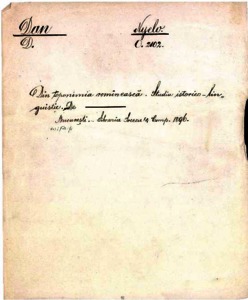 Dan Nyelv.
D. O. 2102.
Din toponimia romînească. Studiu istorico-lin-
guistic. De ———
București. Libraria Socec & Comp. 1896.